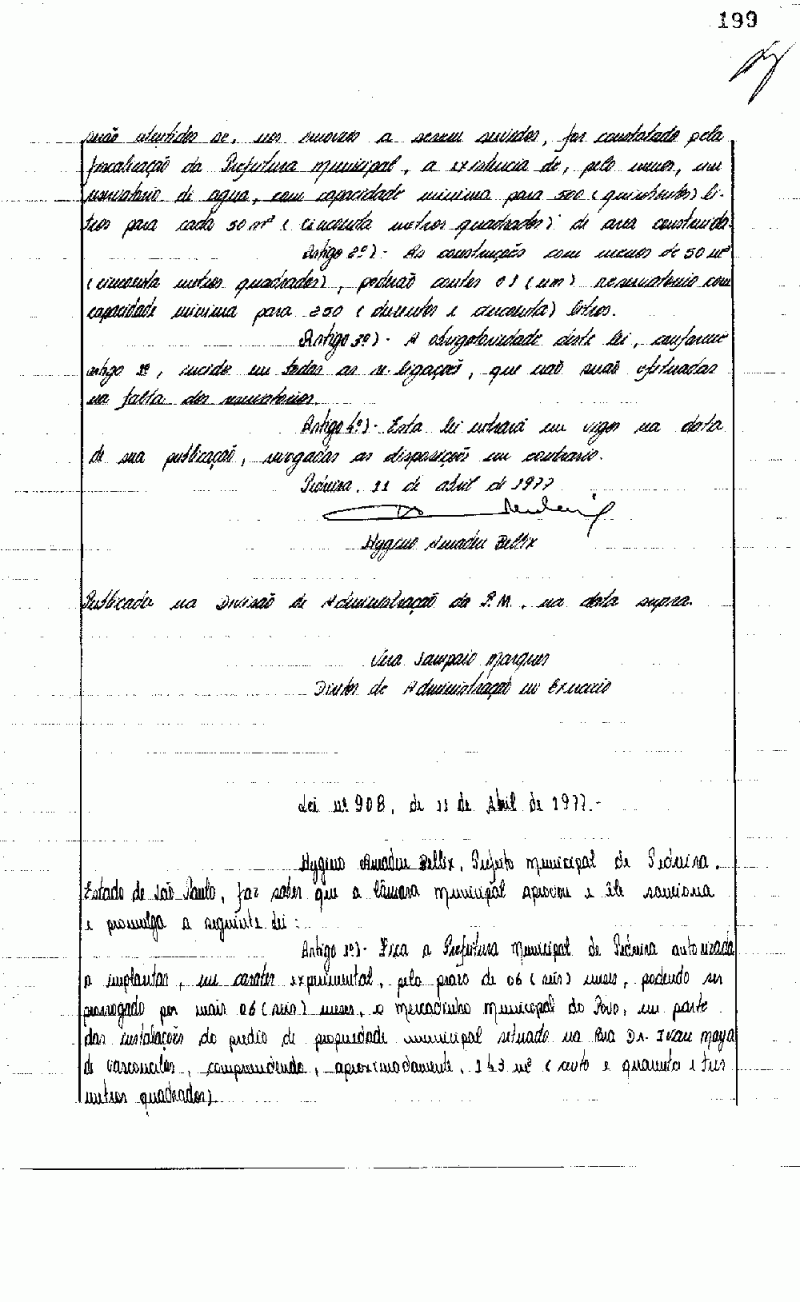 199
serão atendidos se, nos imoveis a serem servidos, for constatado pela
fiscalização da Prefeitura Municipal, a existencia de, pelo menos, um
reservatorio de agua, com capacidade minima para 500 (quinhentos) li-
tros para cada 50 m² (cincoenta metros quadrados) de area construida.
Artigo 2º)- As construções com menos de 50 m²
(cincoenta metros quadrados), poderão conter 01 (um) reservatorio com
capacidade minima para 250 (duzentos e cincoenta) litros.
Artigo 3º)- A obrigatoriedade desta lei, conforme
artigo 1º, incide em todas as re-ligações, que não serão efetuadas
na falta dos reservatorios.
Artigo 4º)- Esta lei entrará em vigor na data
de sua publicação, revogadas as disposições em contrario.
Pedreira, 11 de abril de 1977
Hygino Amadeu Bellix
Publicada na Divisão de Administração da P.M., na data supra.
Vera Sampaio Marques
Diretor de Administração em Exercicio
Lei nº 908, de 11 de Abril de 1977.-
Hygino Amadeu Bellix, Prefeito Municipal de Pedreira,
Estado de São Paulo, faz saber que a Câmara Municipal aprovou e Ele sanciona
e promulga a seguinte lei:
Artigo 1º)- Fica a Prefeitura Municipal de Pedreira autorizada
a implantar, em carater experimental, pelo prazo de 06 (seis) meses, podendo ser
prorrogado por mais 06 (seis) meses, o Mercadinho Municipal do Povo, em parte
das instalações do predio de propriedade municipal situado na Rua Dr. Ivan Maya
de Vasconcelos, compreendendo, aproximadamente, 143 m² (cento e quarenta e tres
metros quadrados)